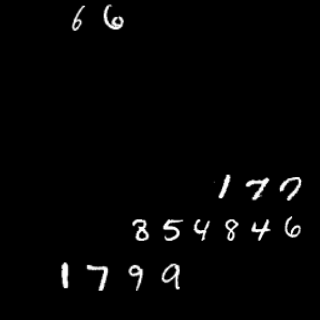 66
177
854846
1799